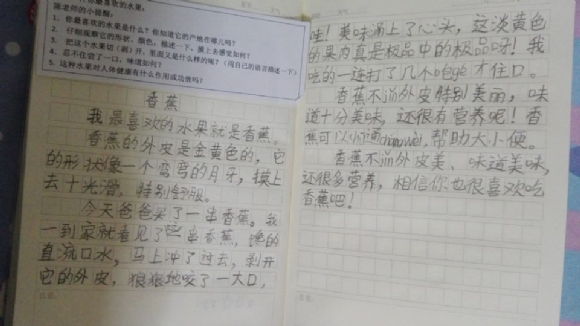 你最喜欢的水果:
陈老师的小提醒:
1. 你最喜欢的水果是什么?你知道它的产地在哪儿吗?
2. 仔细观察它的形状、颜色,描述一下。摸上去感觉如何?
3. 把这个水果切(剥)开,里面又是什么样的呢?
4. 忍不住尝了一口,味道如何?(用自己的语言描述一下)
5. 这种水果对人体健康有什么作用或功效吗?
香蕉
我最喜欢的水果就是香蕉。
香蕉的外皮是金黄色的,它
的形状像一个弯弯的月牙,摸上
去十光滑,特别舒服。
今天爸爸买了一串香蕉。我
一到家就看见了这串香蕉,馋的
直流口水,马上冲了过去,剥开
它的外皮,狠狠地咬了一大口,
哇!美味涌上了心头,这淡黄色
的果肉真是极品中的极品呀!我
吃的一连打了几个bǎo gé才住口。
香蕉不仅外皮特别美丽,味
道十分美味,还很有营养呢!香
蕉可以润通cháng dào,帮助大小便。
香蕉不仅外皮美、味道美味,
还很多营养,相信你也很喜欢吃
香蕉吧!